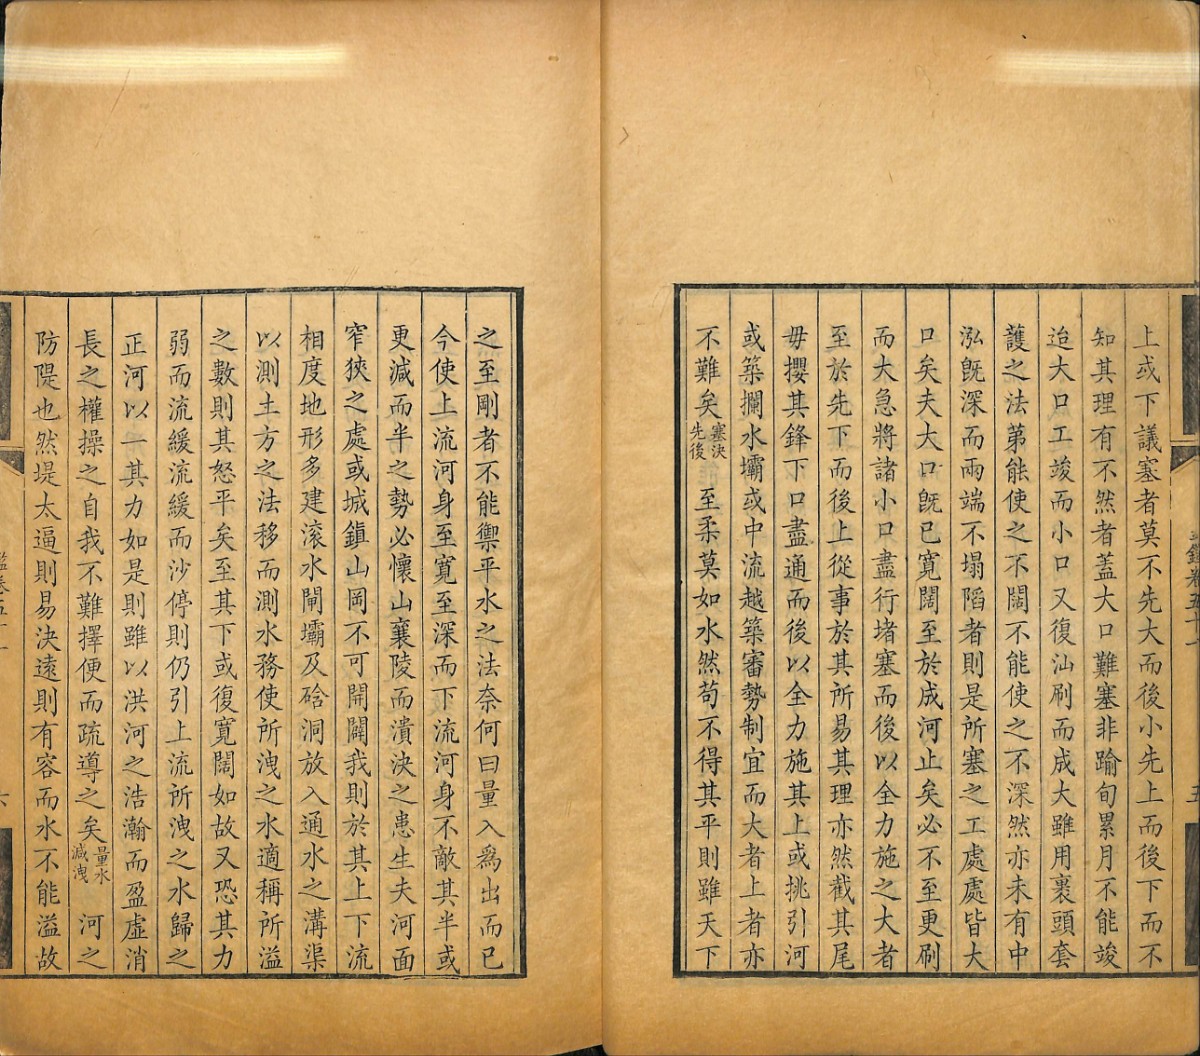 上或下議塞者莫不先大而後小先上而後下而不
知其理有不然者蓋大口難塞非踰旬累月不能竣
迨大口工竣而小口又復汕刷而成大雖用裹頭套
護之法第能使之不闊不能使之不深然亦未有中
泓既深而兩端不塌陷者則是所塞之工處處皆大
口矣夫大口既已寬闊至於成河止矣必不至更刷
而大急將諸小口盡行堵塞而後以全力施之大者
至於先下而後上從事於其所易其理亦然截其尾
毋攖其鋒下口盡通而後以全力施其上或挑引河
或築攔水壩或中流越築審勢制宜而大者上者亦
不難矣塞決先後 至柔莫如水然苟不得其平則雖天下
之至剛者不能禦平水之法奈何曰量入為出而已
今使上流河身至寬至深而下流河身不敵其半或
更減而半之勢必懷山襄陵而潰決之患生夫河面
窄狹之處或城鎮山岡不可開闢我則於其上下流
相度地形多建滾水閘壩及硆洞放入通水之溝渠
以測土方之法移而測水務使所洩之水適稱所溢
之數則其怒平矣至其下或復寬闊如故又恐其力
弱而流緩流緩而沙停則仍引上流所洩之水歸之
正河以一其力如是則雖以洪河之浩瀚而盈虛消
長之權操之自我不難擇便而疏導之矣量水減洩 河之
防隄也然堤太逼則易決遠則有容而水不能溢故